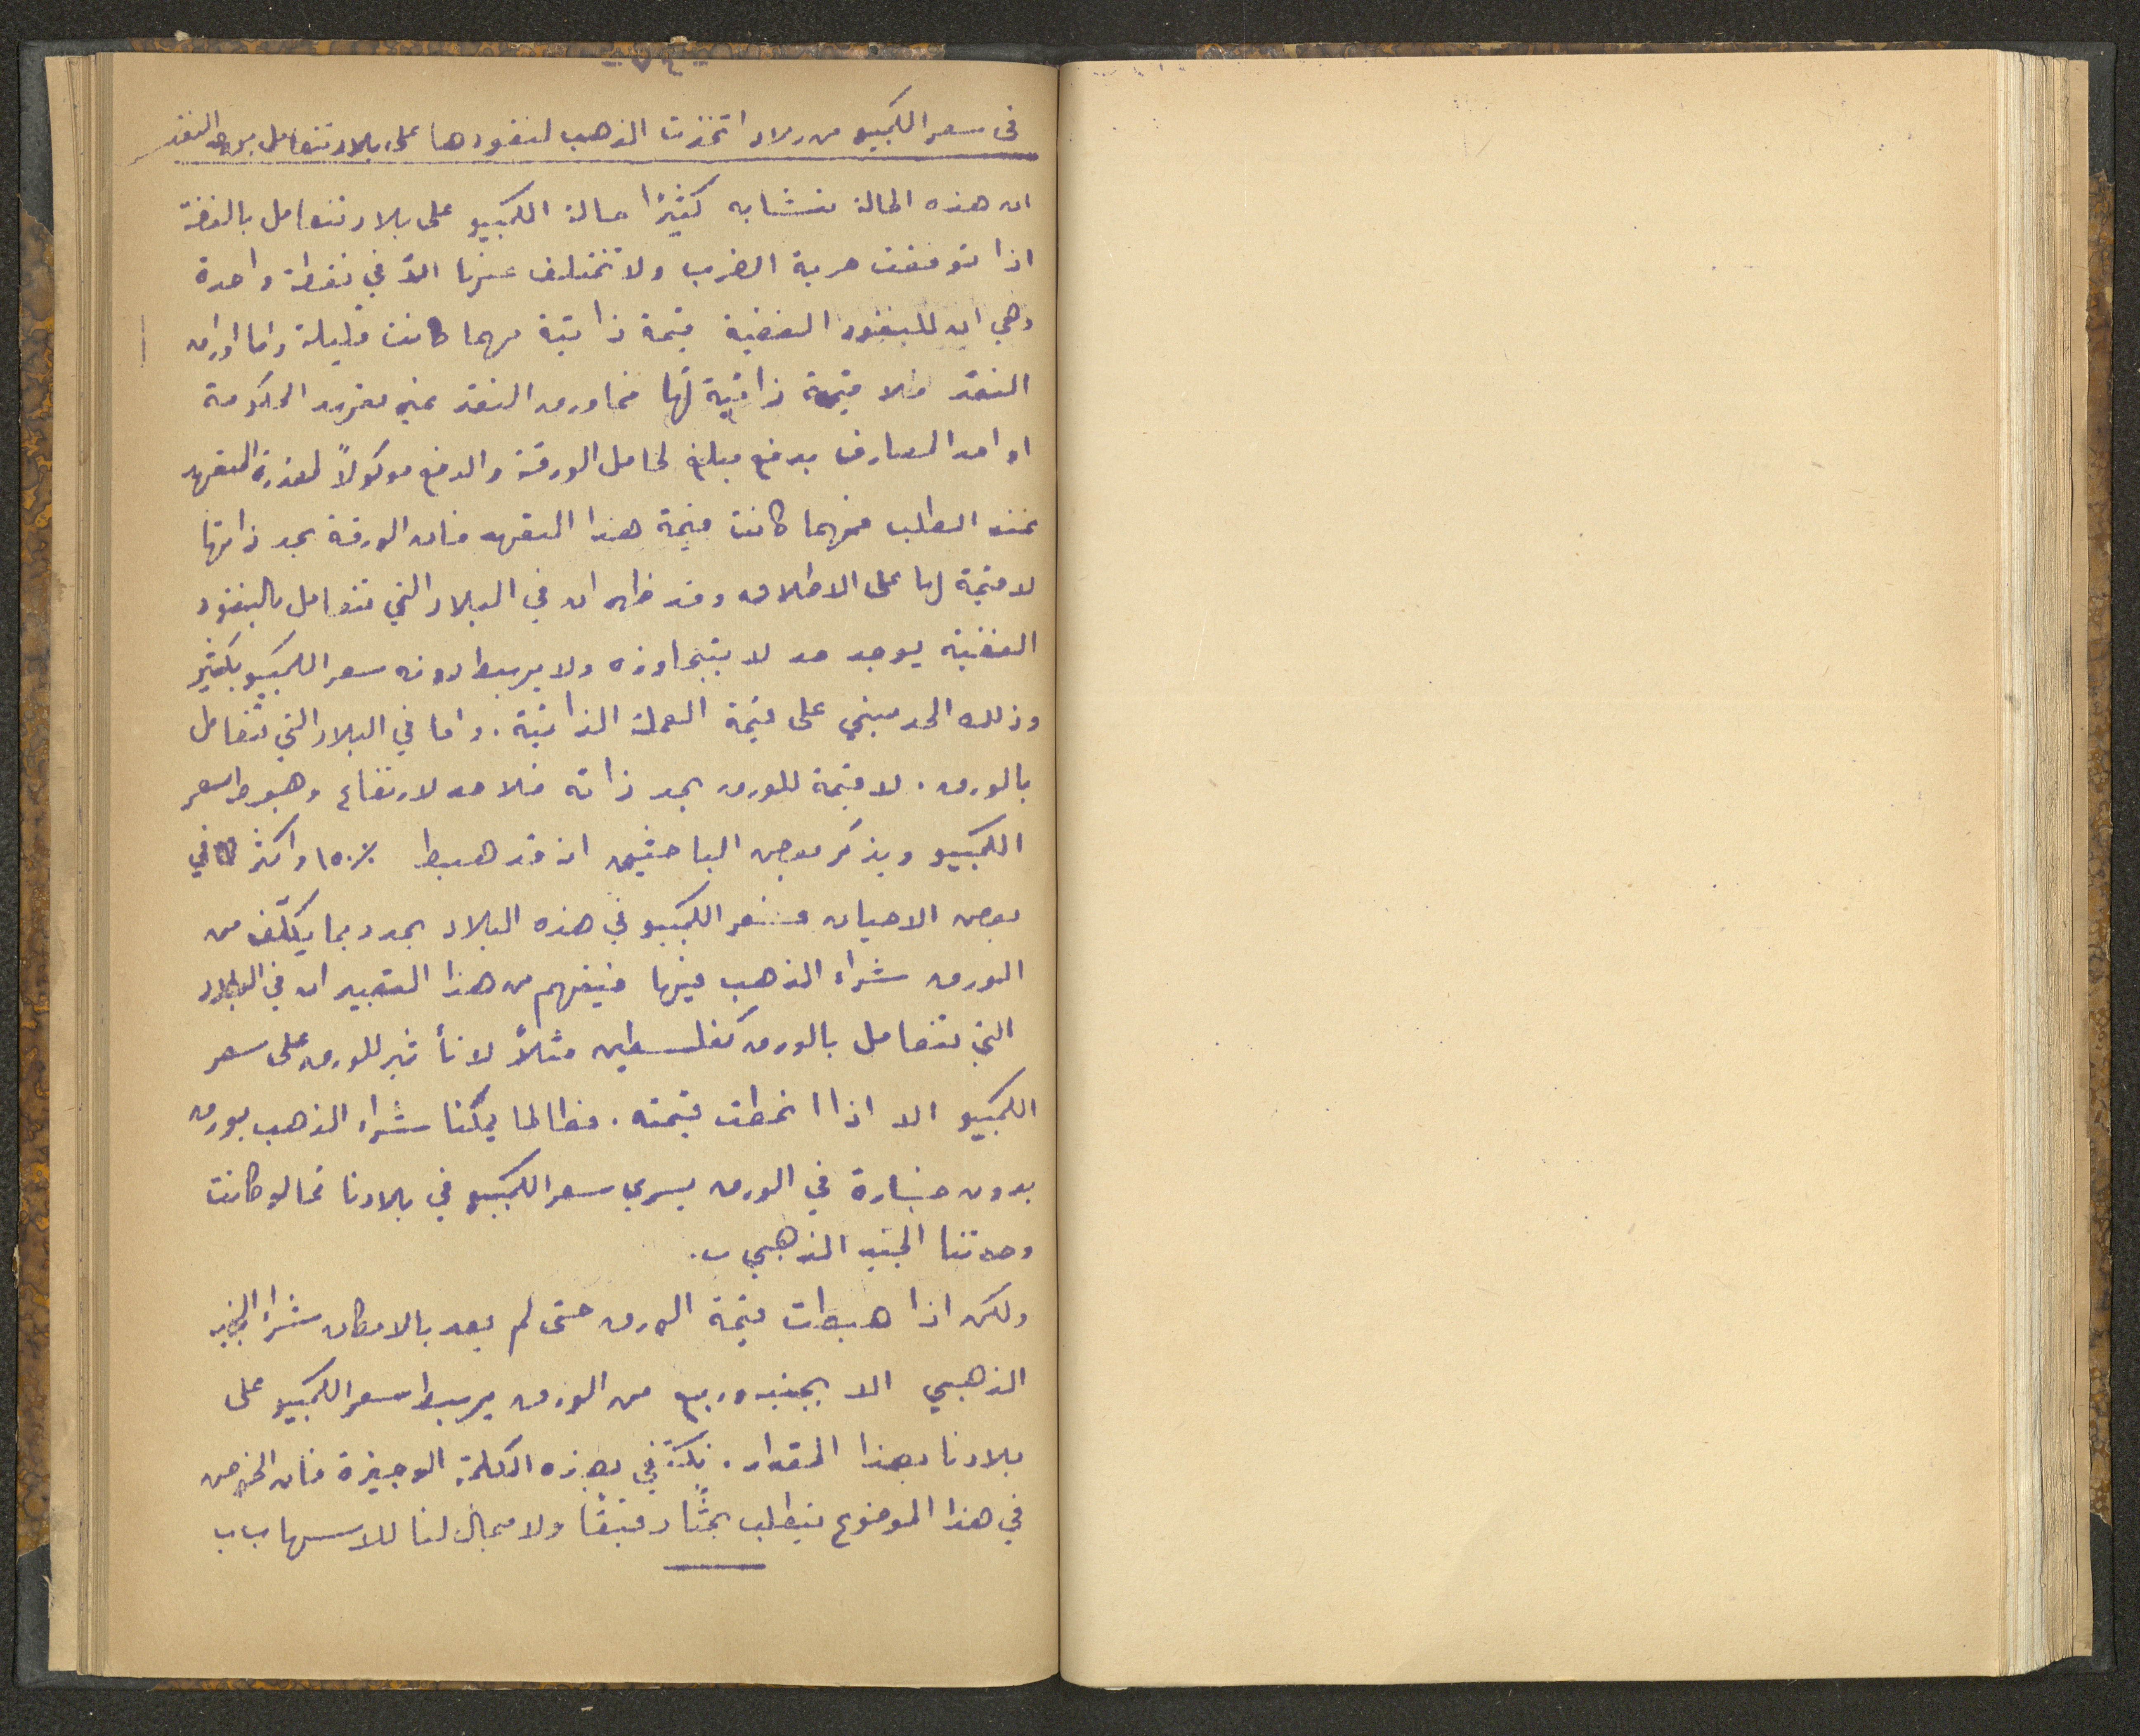 - ٧٤ -
في سعر الكمبيو من بلاد اتخذت الذهب لنقودها على بلاد تتعامل بورق النقد
ان هذه الحالة تتشابه كثيرًا حالة الكمبيو على بلاد تتعامل بالفضة
اذا توقفت حرية الضرب ولا تختلف عنها الاّ في نقطة واحدة
وهي ان للنقود الفضية قيمة ذاتية مهما كانت قليلة واما اوراق
النقد فلا قيمة ذاتية لها فما ورق النقد غير تعهد الحكومة
او احد المصارف بدفع مبلغ لحامل الورقة والدفع موكولاً لمقدرة المتعهد
عند الطلب فمهما كانت قيمة هذا التعهد فان الورقة بحد ذاتها
لا قيمة لها على الاطلاق وقد ظهر ان في البلاد التي تتعامل بالنقود
الفضية يوجد حد لا يتجاوزه ولا يهبط دونه سعر الكمبيو بكثير
وذلك الحد مبني على قيمة العملة الذاتية. واما في البلاد التي تتعامل
بالورق. لا قيمة للورق بحد ذاته فلا حد لارتفاع وهبوط سعر
الكمبيو ويذكر بعض الباحثين انه قد هبط ١٥٠٪ واكثر في
بعض الاحيان فسعر الكمبيو في هذه البلاد يحدد بما يكلّف من
الورق شراء الذهب فيها فيفهم من هذا التعبير ان في البلاد
التي تتعامل بالورق كفلسطين مثلاً لا تأثير للورق على سعر
الكمبيو الا اذا انحطت قيمته. فطالما يمكننا شراء الذهب بورق
بدون خسارة في الورق يسري سعر الكمبيو في بلادنا كما لو كانت
وحدتنا الجنيه الذهبي.
ولكن اذا هبطت قيمة الورق حتى لم يعد بالامكان شراء الجنيه
الذهبي الا بجنيه وربع من الورق يهبط سعر الكمبيو على
بلادنا بهذا المقدار. نكتفي بهذه الكلمة الوجيزة فان الخوض
في هذا الموضوع يتطلب بحثًا دقيقًا ولا مجال لنا للاسهاب